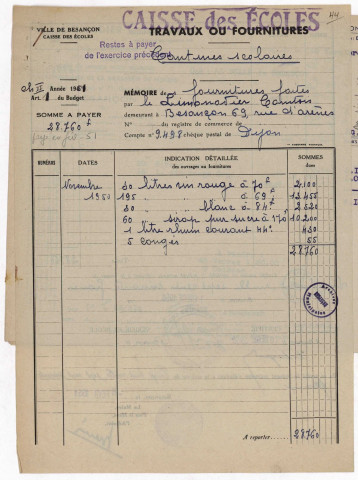 CAISSE des ÉCOLES
44
VILLE DE BESANÇON
CAISSE DES ÉCOLES
TRAVAUX OU FOURNITURES
Restes à payer
de l'exercice précédent
Cantines scolaires
Ch. II Année 1951
Art. 1 du Budget
MÉMOIRE de fournitures faites
SOMME A PAYER
28.760 f
par le Limonadier
demeurant à Besançon 69, rue d'arènes
N° du registre de commerce de
Compte n° 9.498 chèque postal de Dijon
NUMÉROS
DATES
INDICATION DÉTAILLÉE
des ouvrages ou fournitures
SOMMES
dues
Novembre 30 litres vin rouge à 70 f 2.100
1950 195 " à 69 f 13.455
30 " blanc à 84 f 2.520
60 " sirop pur sucre à 170 f 10.200
1 litre rhum courant 44° 430
5 conges 55
28760
A reporter 28.760